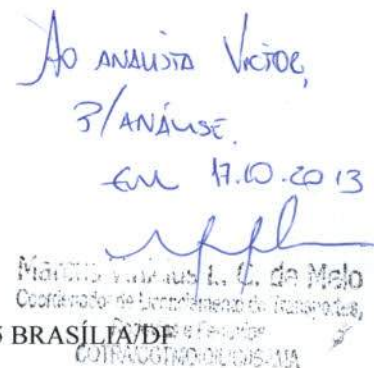 Ao ANALISTA VICTOR,
P/ANÁLISE.
EM 17.10.2013
Marcus Vinicius L. C. de Melo
Coordenador de Licenciamento de Transportes,
BRASÍLIA/DF